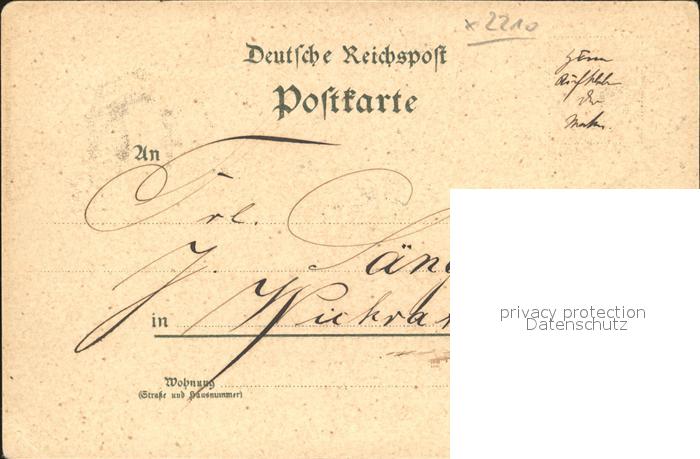 x 2210
Deutsche Reichspost
Postkarte
An
Frl.
J. Säng
in Wickra
Wohnung
(Straße und Hausnummer)
privacy protection
Datenschutz